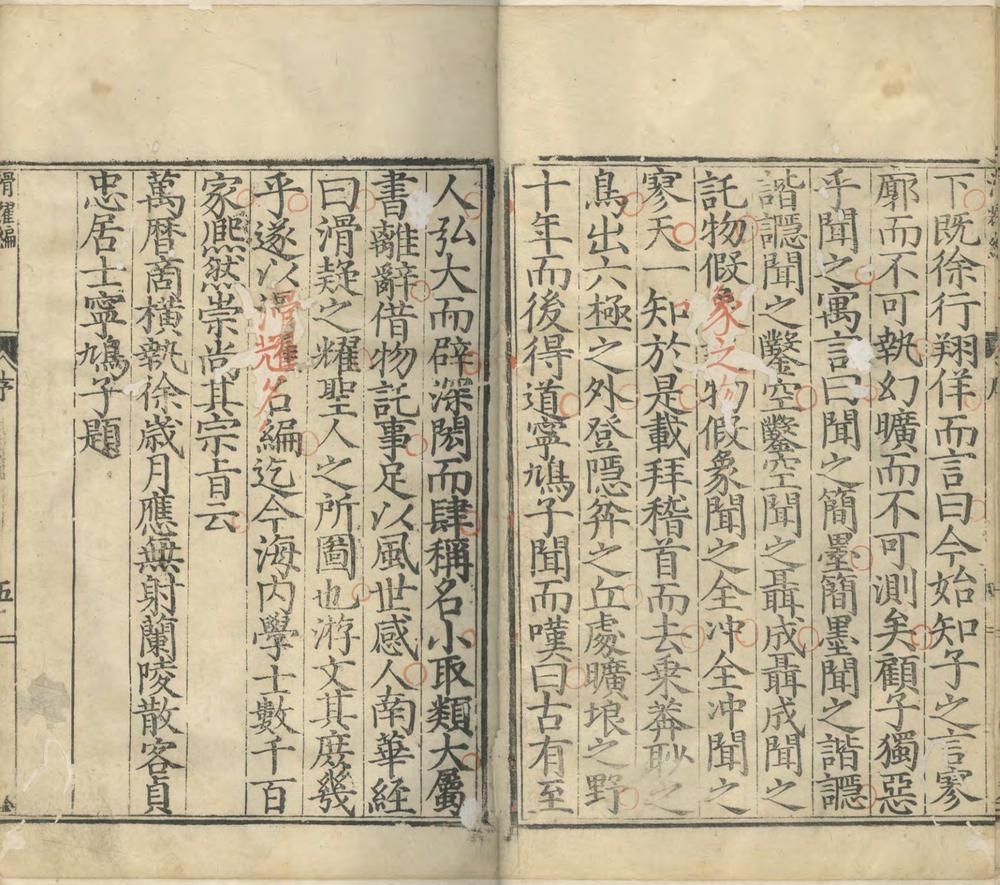 下既徐行翔佯而言曰今始知子之言寥
廓而不可執幻曠而不可測矣顧子獨惡
乎聞之寓言曰聞之簡墨簡墨聞之諧讔
諧讔聞之鑿空鑿空聞之聶成聶成聞之
託物假象之物假象聞之全冲全冲聞之
寥天一知於是載拜稽首而去乗莽眇之
鳥出六極之外登隱弅之丘處曠埌之野
十年而後得道寧鳩子聞而嘆曰古有至
人弘大而辟深閎而肆稱名小取類大屬
書離辭借物託事足以風世感人南華經
曰滑疑之耀聖人之所圖也游文其庶幾
乎遂以滑耀名編迄今海内學士數千百
家熈然崇尚其宗㫖云
萬曆啇横執徐歳月應無射蘭陵散客貞
忠居士寧鳩子題
滑耀編
序
五